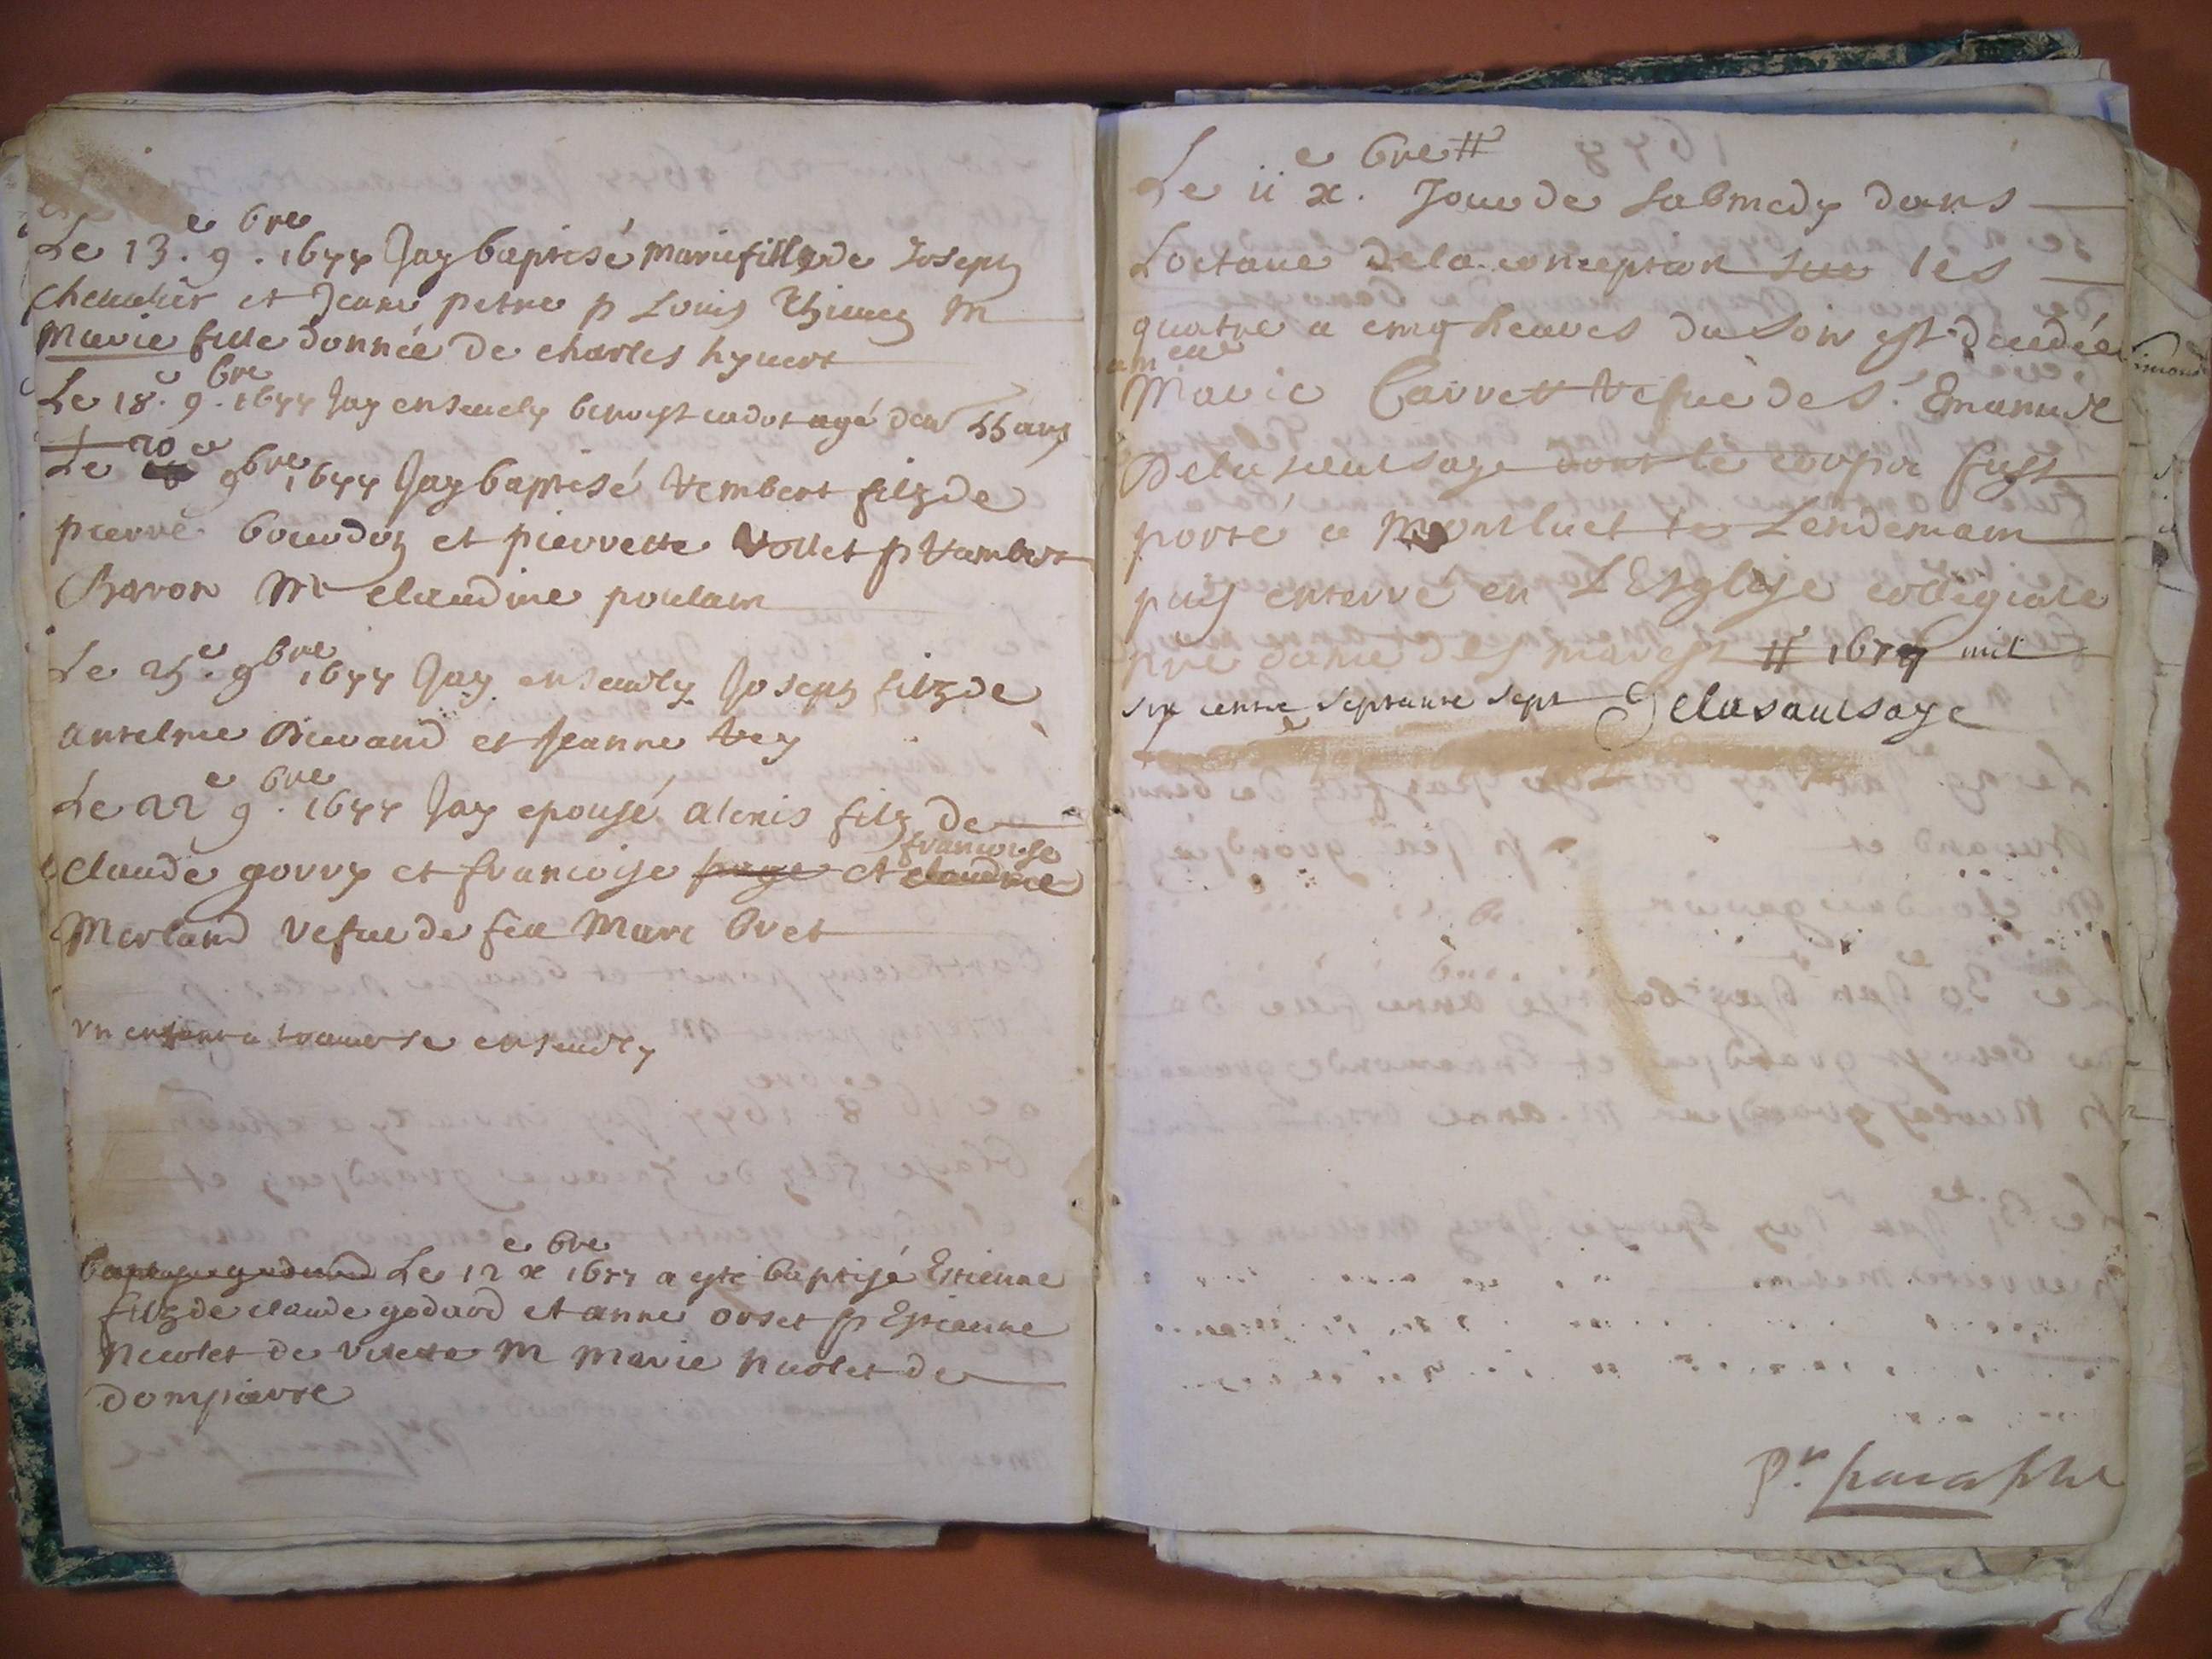 Le 13.e 9.bre 1677 Jay baptisé Marie fille de Joseph
chevalier et Jeane petre p Louis M
Marie fille donnée de charles hyvert
Le 18.e 9.bre 1677 Jay ensevely benoyst cadot agé de 55 ans
Le 20e 9bre 1677 Jay baptisé Vembert filz de
pierre et pierrette Vollet p Vambert
Baron M claudine poulain
Le 25.e 9bre 1677 Jay ensevely Joseph filz de
Antelme et Jeanne Vey
Le 22e 9.bre 1677 Jay epousé Alexis filz de
claude gorry et francoise page et claudine francoise
Merland vefue de feu Marc Bret
Vn enfant a trauerse ensevely
Le 12e xbre 1677 a este baptisé Estienne
filz de claude godard et anne orset p Estienne
Nicolet de Vilette M Marie Nicolet de
dompierre
Le iie xbre. Jour de Sabmedy dans
Loctaue de la conception sur les
quatre a cinq heures du Soir est decedée
Marie Carret Vefue de Sr Emanuel
Delasaulsaye dont le corps fust
porté a Monluel le Lendemain
puis enterré en LEsglise collegiale
nre dame des marest # 1677 mil
six cents septante sept Delasaulsaye
Pr. paraphe